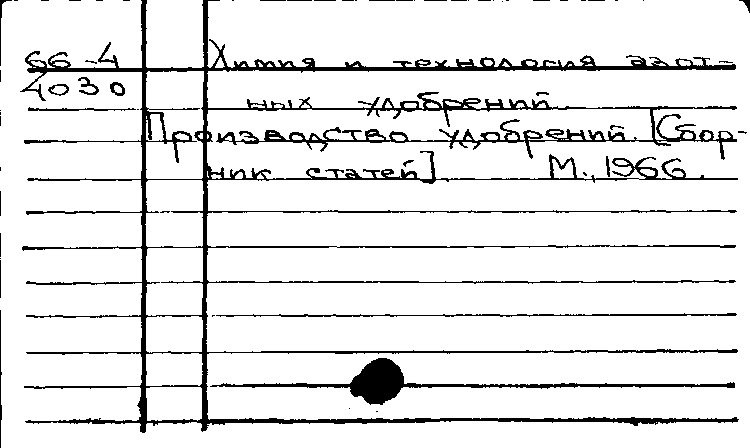 66-4 Химия и технология азот-
4030
ных удобрений.
Производство удобрений. [Сбор-
ник статей] М., 1966.